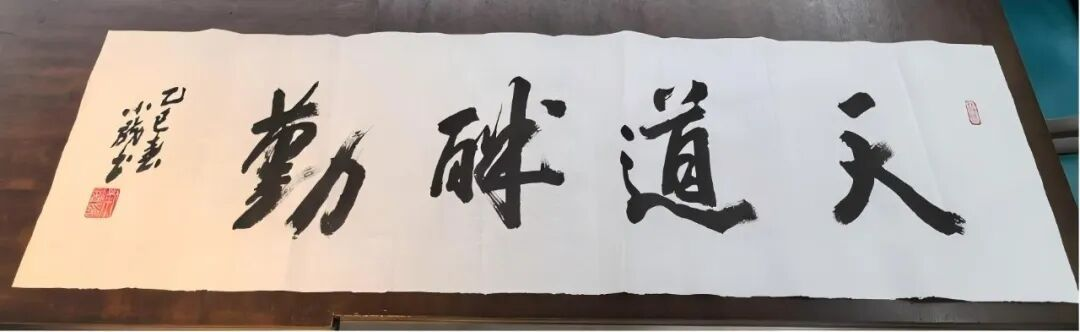 天道酬勤
乙巳春
小书